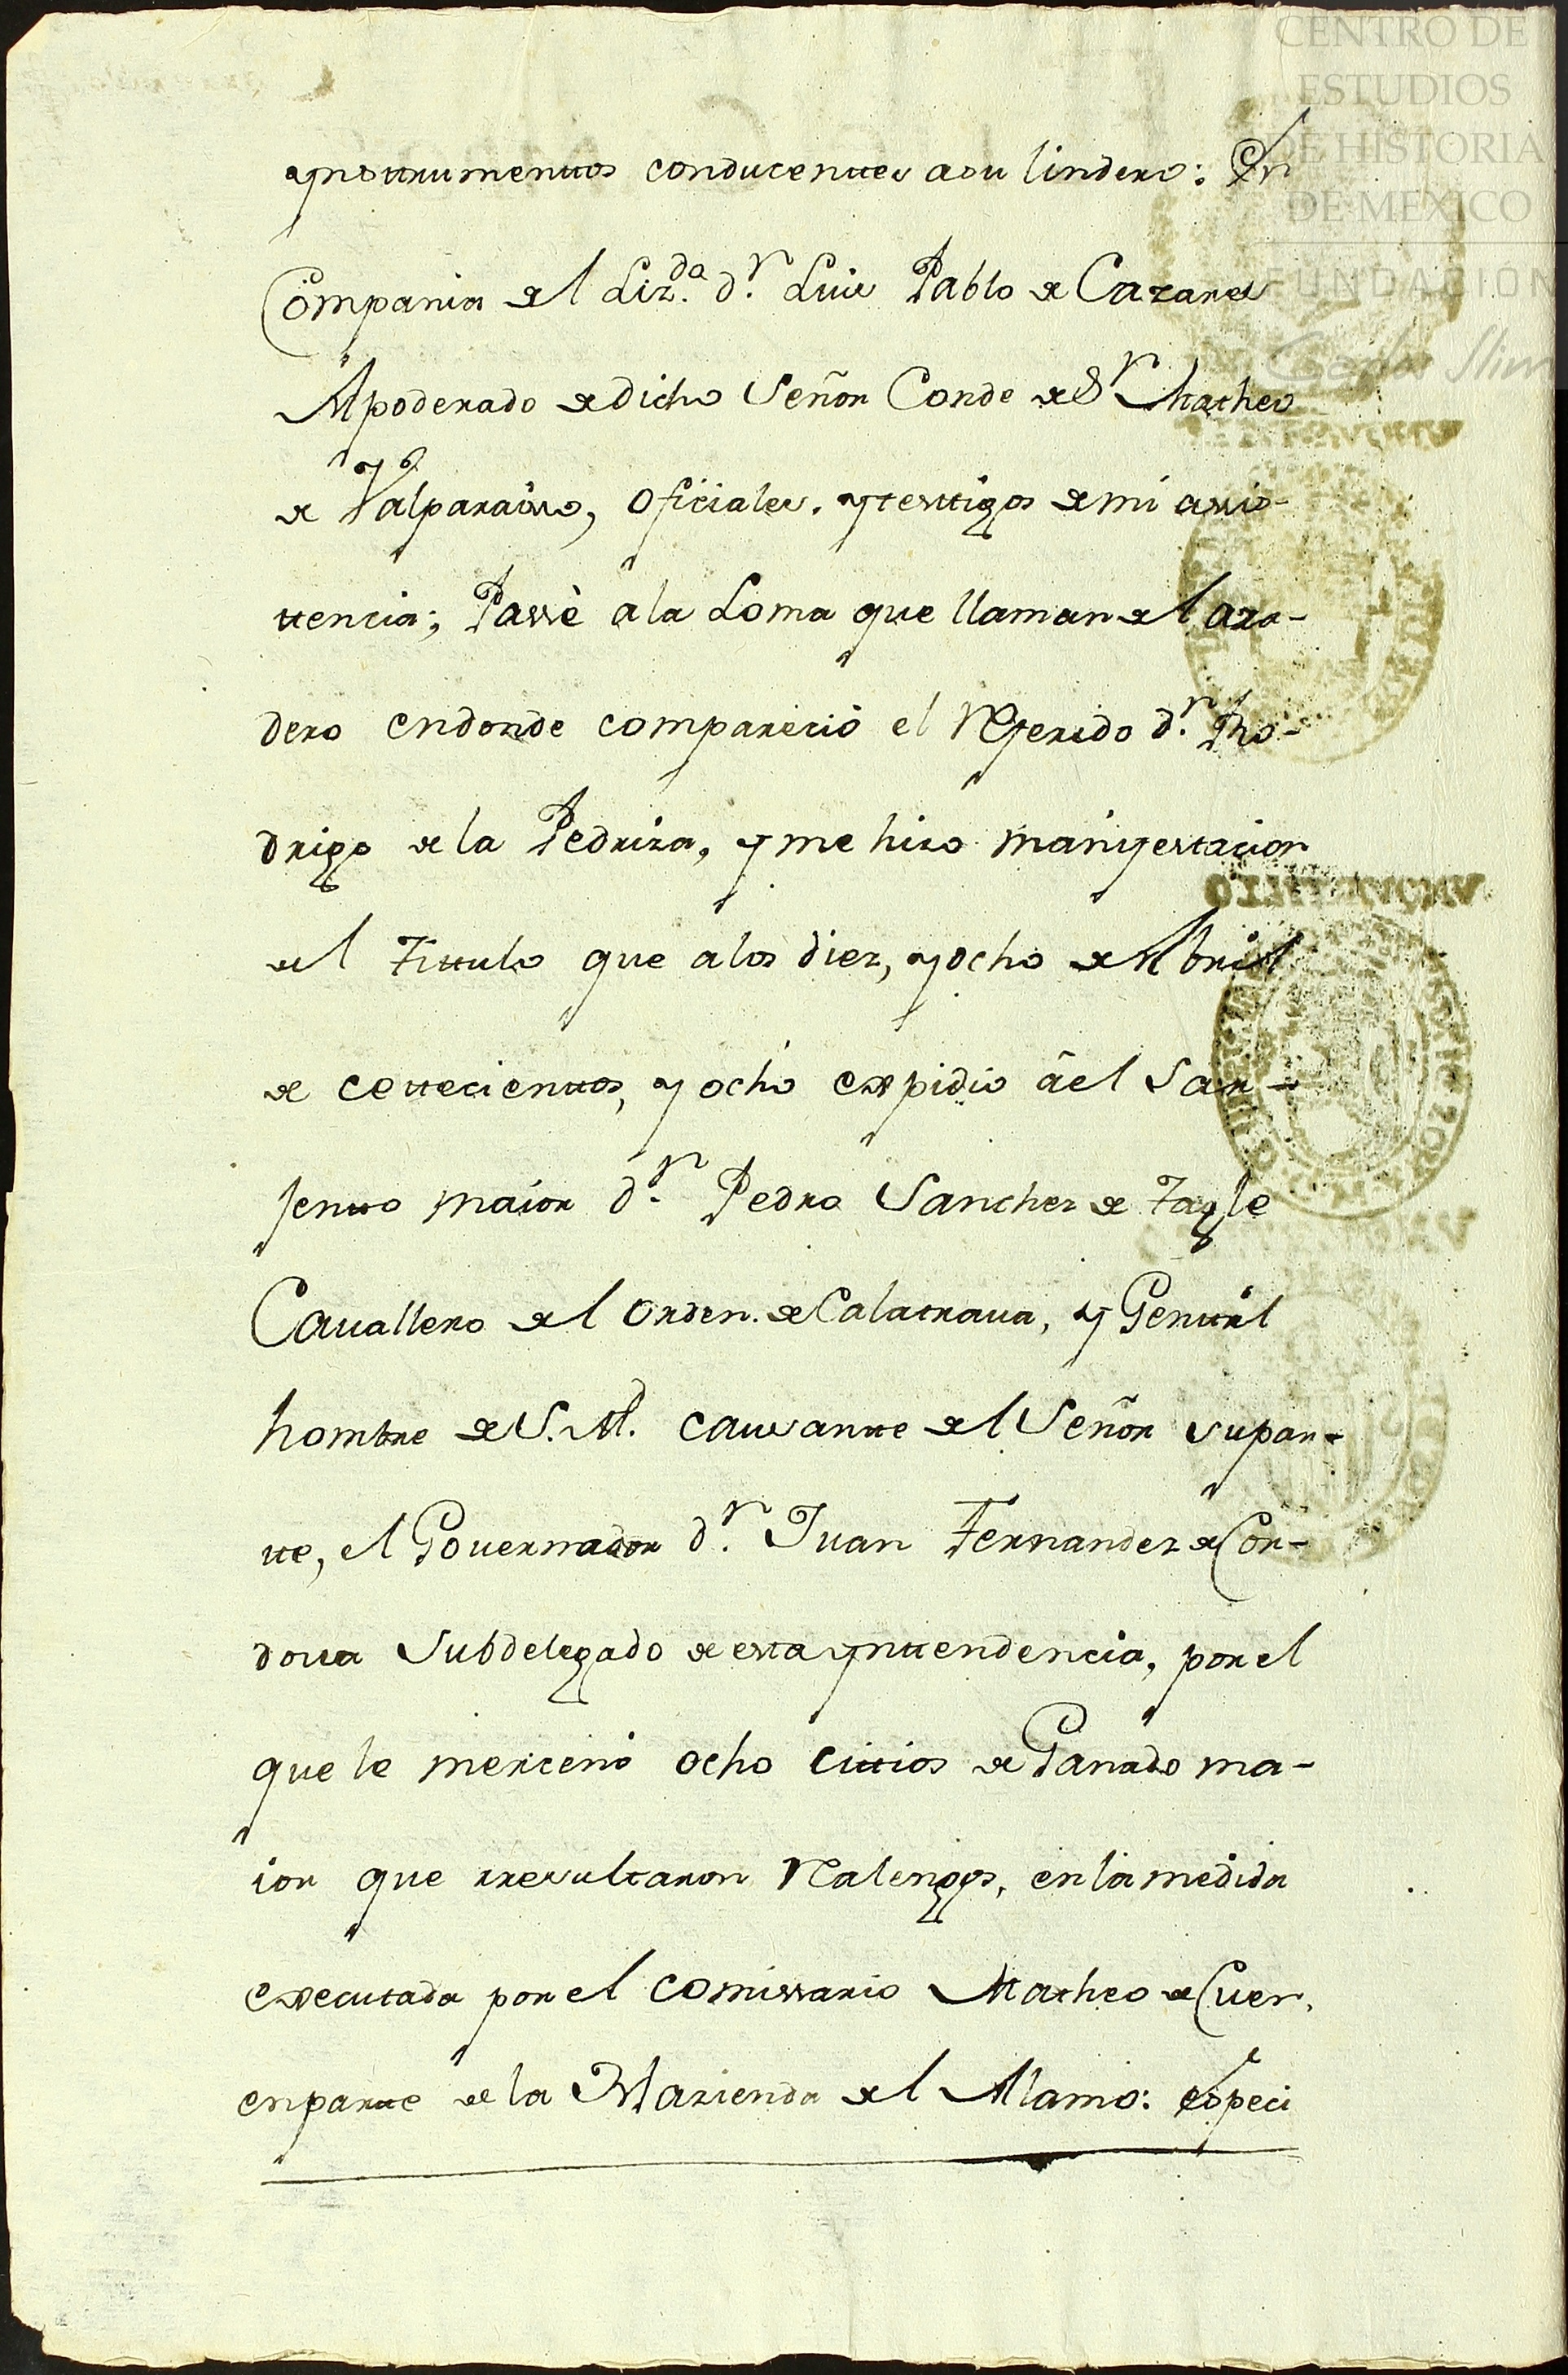 CENTRO DE
ESTUDIOS
DE HISTORIA
DE MEXICO
FUNDACIÓN
Carlos Slim
ynstrumentos conducentes asu lindero: En
Compania del Liz.do d.n Luis Pablo de Cazares
Apoderado de dicho Señor Conde de S.n Matheo
de Valparaiso, oficiales, y testigos de mi asis-
tencia; Passè a la Loma que llaman del aza-
dero endonde comparecio el Referido d.n Rho-
drigo de la Pedriza, y me hizo manifestacion
del Titulo que a los diez, y ocho de Abril
de cetecientos, y ocho expidio âel Sar-
jento maior d.n Pedro Sanchez de Tagle
Cauallero del orden de Calatraua, y Gentil
hombre de S.M. causante del Señor supar-
te, el Gouernador d.n Juan Fernandez de Cor-
doua Subdelegado de esta yntendencia, por el
que le mercenó ocho citios de Ganado ma-
ior que rresultaron Realengos, en la medida
executada por el comissario Matheo de Cuer,
en parte de la Hazienda del Alamo: especi